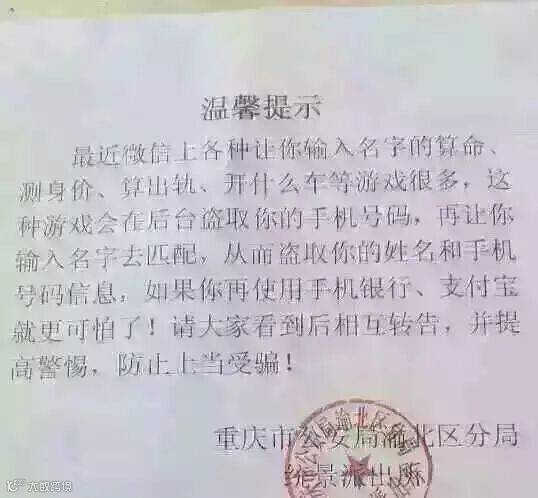 温馨提示
最近微信上各种让你输入名字的算命、
测身价、算出轨、开什么车等游戏很多，这
种游戏会在后台盗取你的手机号码，再让你
输入名字去匹配，从而盗取你的姓名和手机
号码信息，如果你再使用手机银行、支付宝
就更可怕了！请大家看到后相互转告，并提
高警惕，防止上当受骗！
重庆市公安局渝北区分局
景派出所
公安局渝北区分局
大数跨境